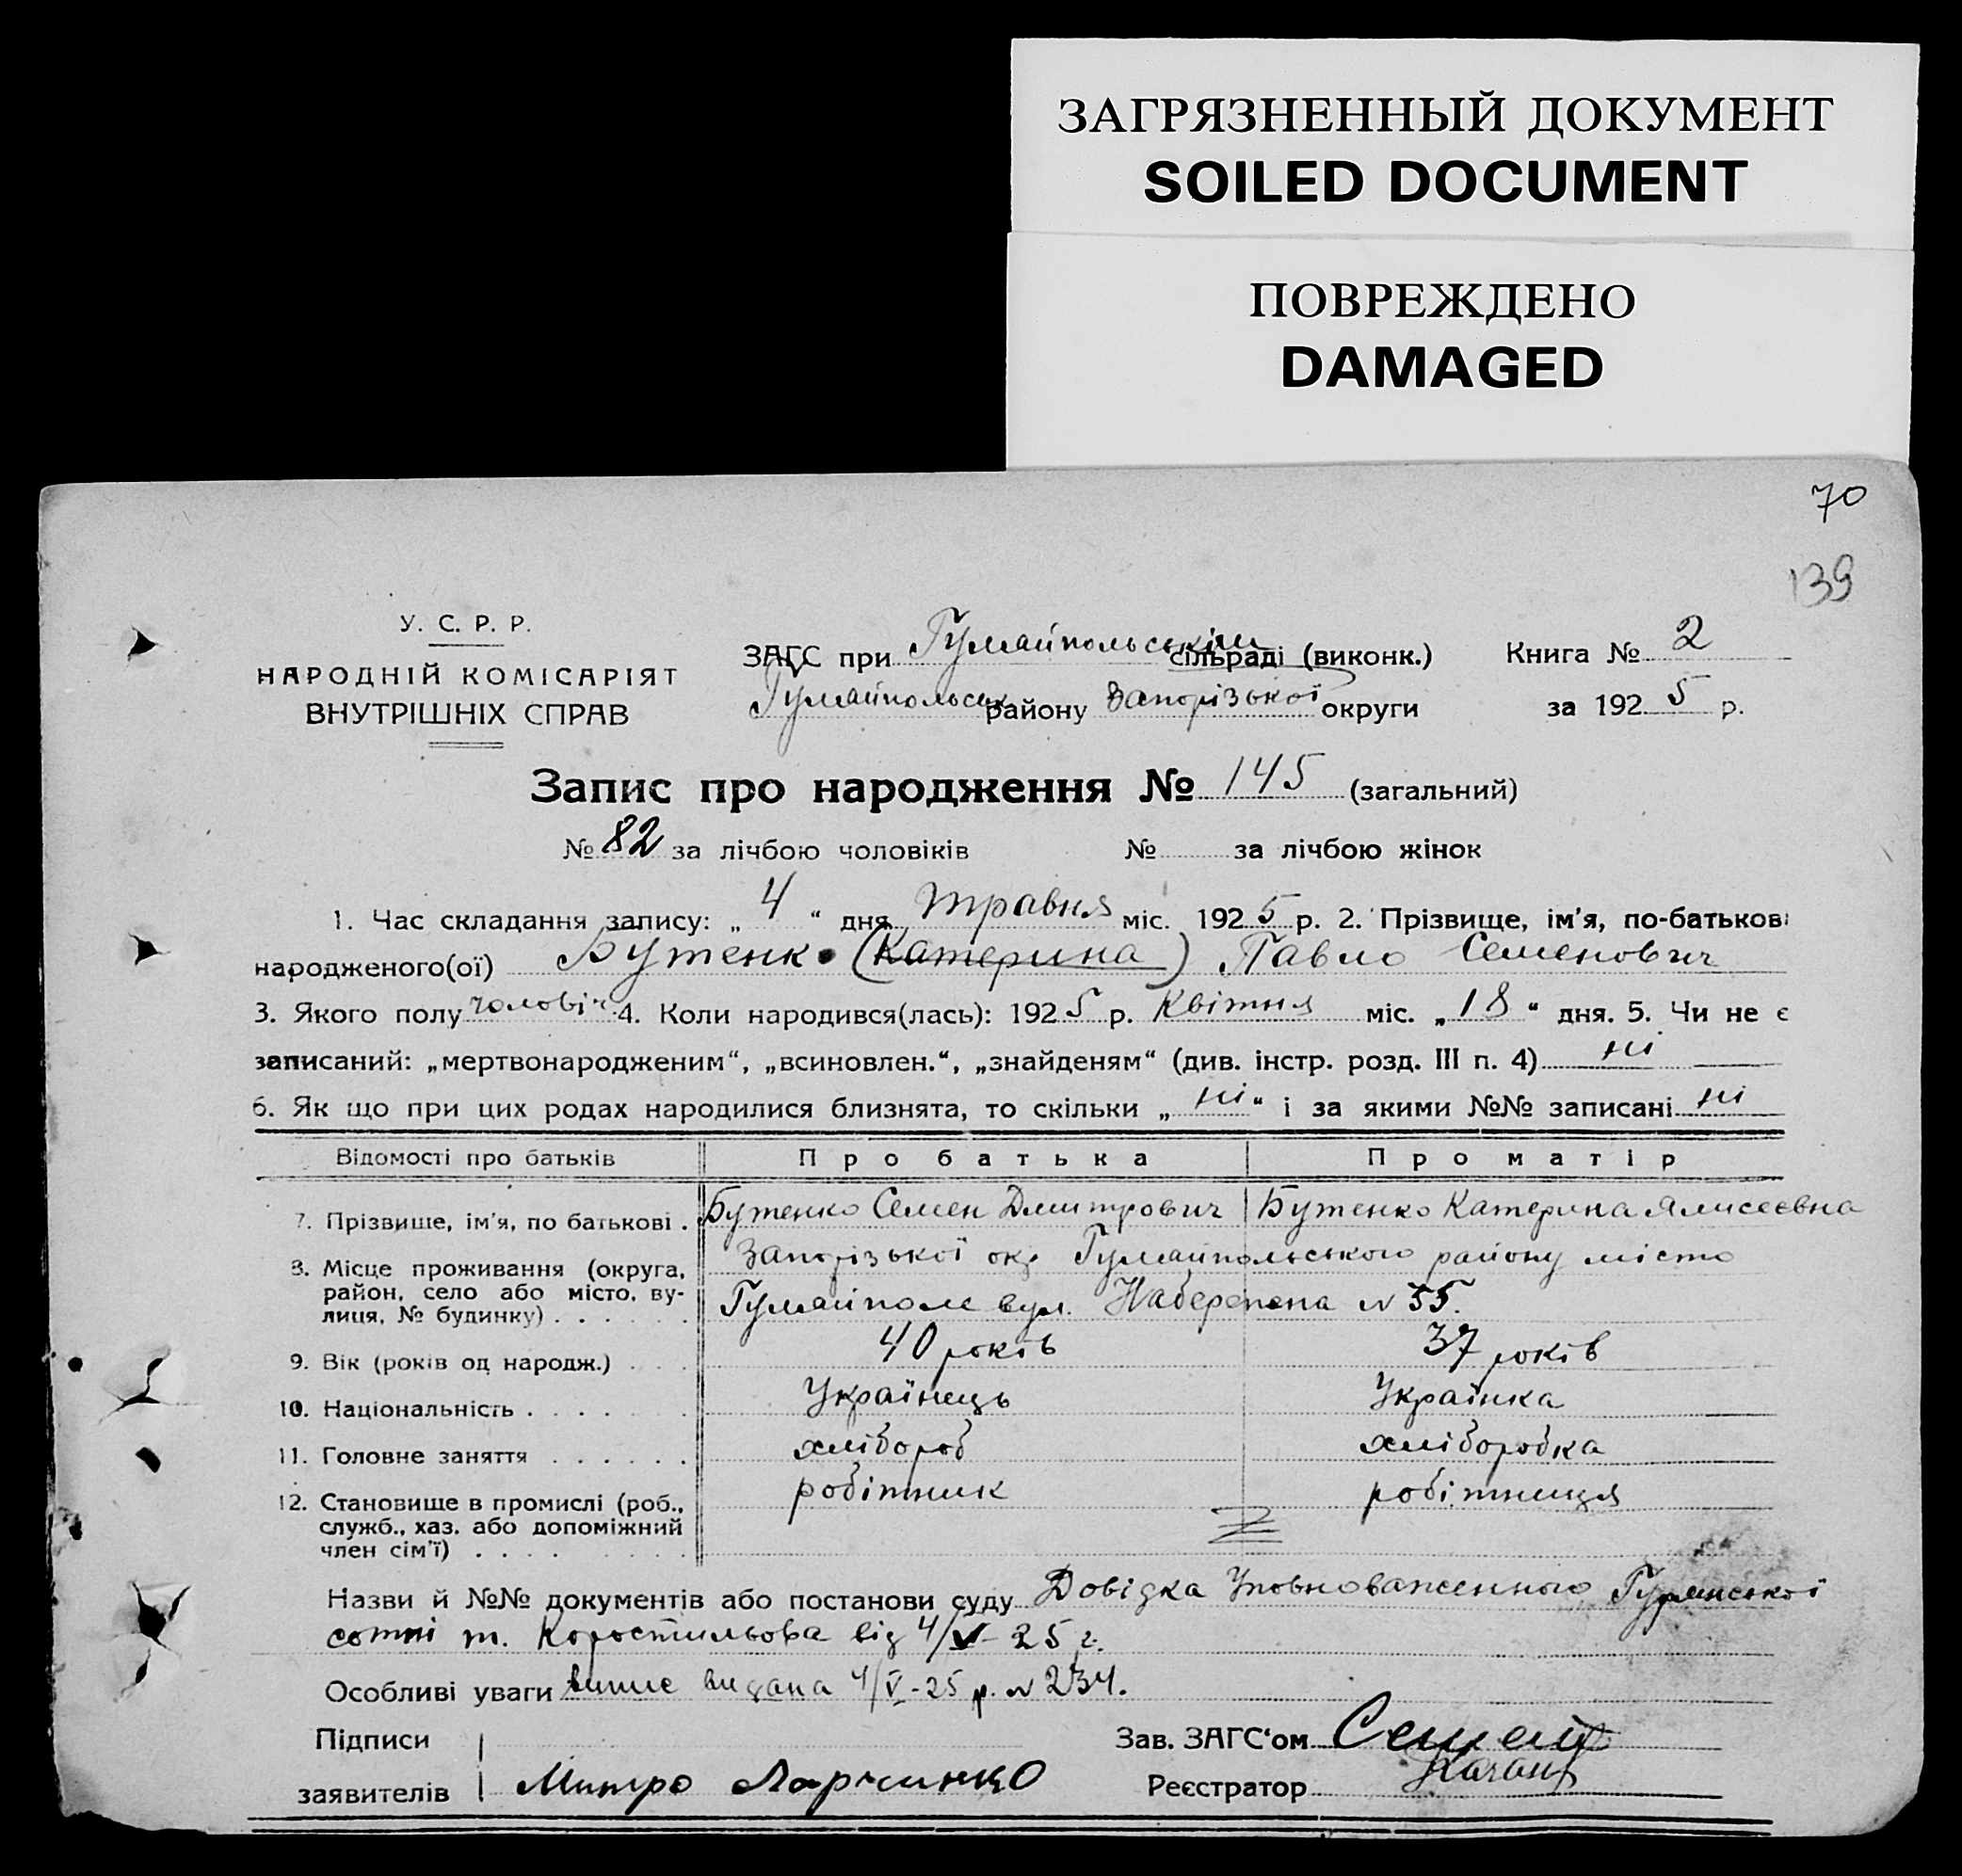 ЗАГРЯЗНЕННЫЙ ДОКУМЕНТ
SOILED DOCUMENT
ПОВРЕЖДЕНО
DAMAGED
70
139
У. С. Р. Р.
НАРОДНІЙ КОМІСАРІЯТ
ВНУТРІШНІХ СПРАВ
ЗАГС при Гуляйпольськім сільраді (виконк.)
Гуляйпольськ району Запорізької округи
Книга № 2
за 1925 р.
Запис про народження № 145 (загальний)
№ 82 за лічбою чоловіків № за лічбою жінок
1. Час складання запису: „ 4 “ дня травня міс. 1925 р. 2. Прізвище, ім'я, по-батькові
народженого(ої) Бутенко (Катерина) Павло Семенович
3. Якого полу чоловіч. 4. Коли народився(лась): 1925 р. Квітня міс. „ 18 “ дня. 5. Чи не є
записаний: „мертвонародженим“, „всиновлен.“, „знайденям“ (див. інстр. розд. III п. 4) ні
6. Як що при цих родах народилися близнята, то скільки „ ні “ і за якими №№ записані ні
Відомості про батьків Про батька Про матір
7. Прізвище, ім'я, по батькові . Бутенко Семен Дмитрович Бутенко Катерина Алисеєвна
8. Місце проживання (округа, район, село або місто, вулиця, № будинку) . . . . . . Запорізької окр Гуляйпольського району місто
Гуляйполе вул. Набережна № 55.
9. Вік (років од народж.) . . . 40 років 37 років
10. Національність . . . . . . Українець Українка
11. Головне заняття . . . . . . хлібороб хліборобка
12. Становище в промислі (роб., служб., хаз. або допоміжний член сім'ї) . . . . робітник робітниця
Назви й №№ документів або постанови суду Довідка Уповноваженного
сотні т. Коростильова від 4/V-25 г.
Особливі уваги видана 4/V-25 р. № 234.
Підписи
заявителів Митро
Зав. ЗАГС'ом
Реєстратор